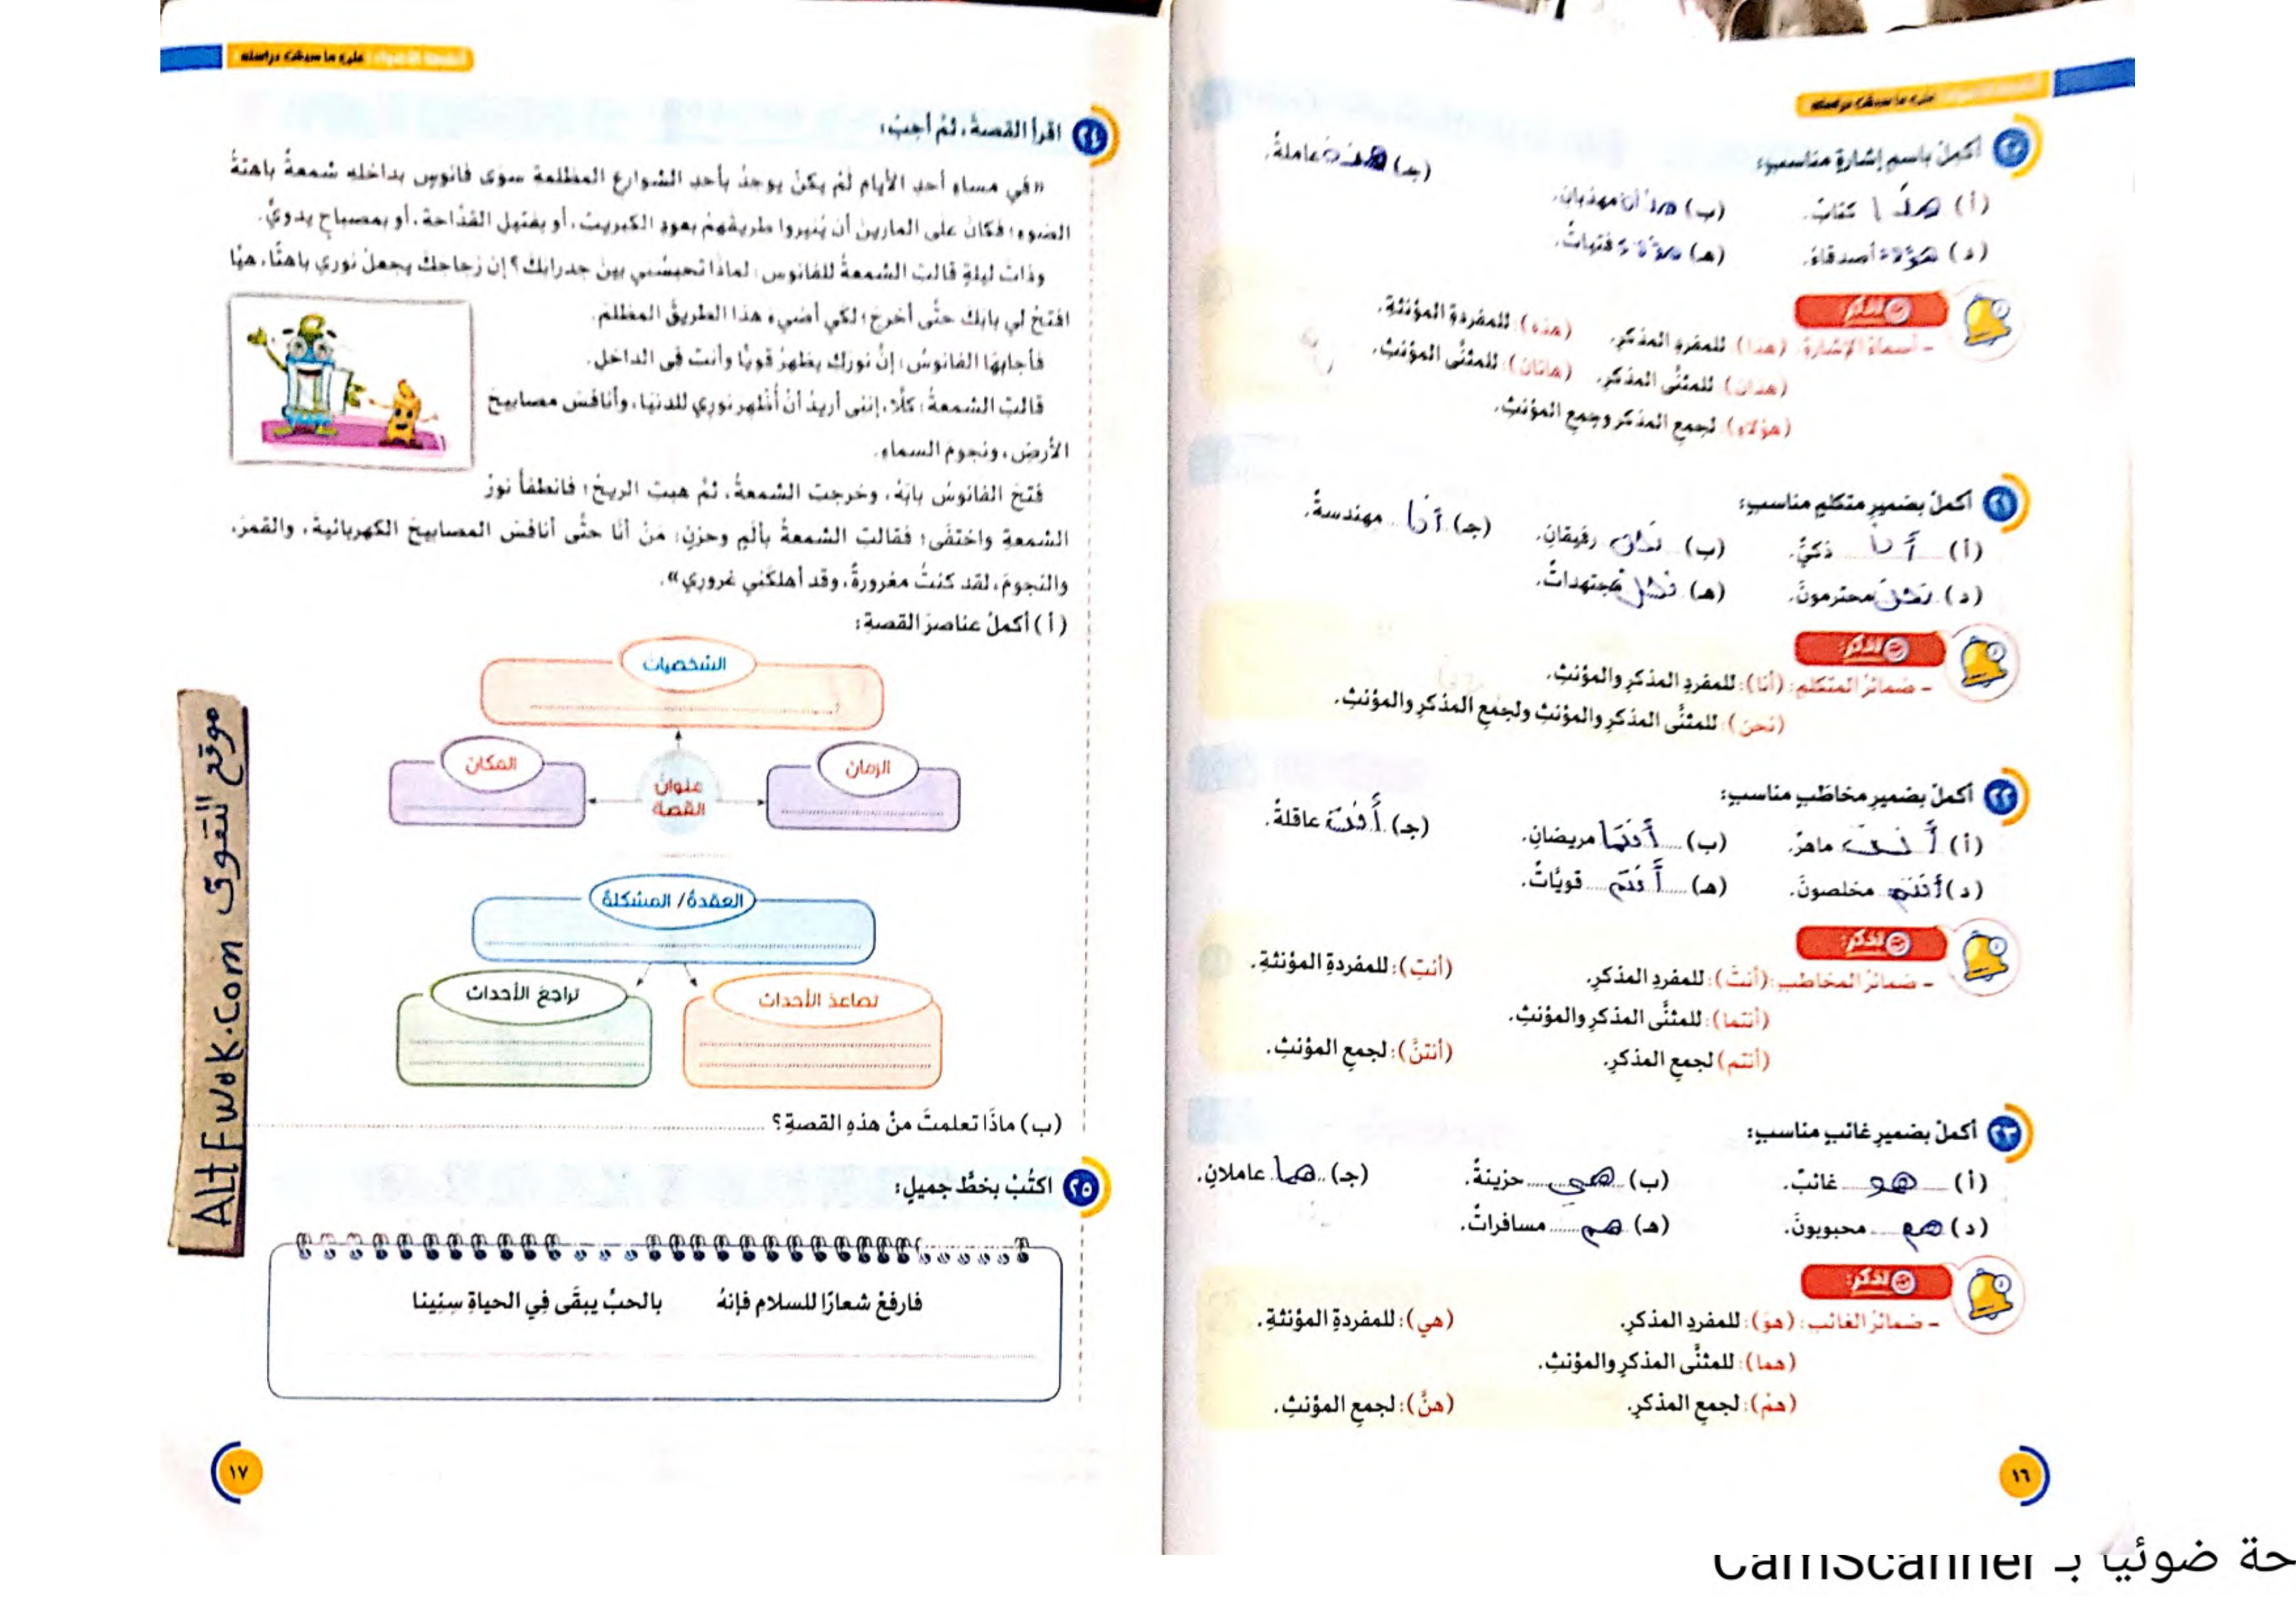 على ما سبقت دراسته
٢٠ أكملْ باسمِ إشارةٍ مناسبٍ:
(أ) هذا كتابٌ. (ب) هذان مهذبانِ. (جـ) هذه عاملةٌ.
(د) هؤلاء أصدقاءُ. (هـ) هؤلاء فتياتٌ.
تذكر:
- أسماءُ الإشارةِ: (هذا): للمفردِ المذكرِ. (هذه): للمفردةِ المؤنثةِ.
(هذان): للمثنَّى المذكرِ. (هاتان): للمثنَّى المؤنثِ.
(هؤلاءِ): لجمعِ المذكرِ وجمعِ المؤنثِ.
٢١ أكملْ بضميرِ متكلمٍ مناسبٍ:
(أ) أنا ذكيٌّ. (ب) نحن رفيقانِ. (جـ) أنا مهندسةٌ.
(د) نحن محترمونَ. (هـ) نحن مجتهداتٌ.
تذكر:
- ضمائرُ المتكلمِ: (أنا): للمفردِ المذكرِ والمؤنثِ.
(نحنُ): للمثنَّى المذكرِ والمؤنثِ ولجمعِ المذكرِ والمؤنثِ.
٢٢ أكملْ بضميرِ مخاطَبٍ مناسبٍ:
(أ) أنت ماهرٌ. (ب) أنتما مريضانِ. (جـ) أنت عاقلةٌ.
(د) أنتم مخلصونَ. (هـ) أنتم قويَّاتٌ.
تذكر:
- ضمائرُ المخاطبِ: (أنتَ): للمفردِ المذكرِ. (أنتِ): للمفردةِ المؤنثةِ.
(أنتما): للمثنَّى المذكرِ والمؤنثِ.
(أنتم) لجمعِ المذكرِ. (أنتنَّ): لجمعِ المؤنثِ.
٢٣ أكملْ بضميرِ غائبٍ مناسبٍ:
(أ) هو غائبٌ. (ب) هي حزينةٌ. (جـ) هما عاملانِ.
(د) هم محبوبونَ. (هـ) هم مسافراتٌ.
تذكر:
- ضمائرُ الغائبِ: (هوَ): للمفردِ المذكرِ. (هي): للمفردةِ المؤنثةِ.
(هما): للمثنَّى المذكرِ والمؤنثِ.
(همْ): لجمعِ المذكرِ. (هنَّ): لجمعِ المؤنثِ.
١٦
على ما سبقت دراسته
٢٤ اقرأ القصةَ، ثمَّ أجبْ:
«في مساءِ أحدِ الأيامِ لمْ يكنْ يوجدُ بأحدِ الشوارعِ المظلمةِ سوَى فانوسٍ بداخلهِ شمعةٌ باهتةُ
الضوءِ؛ فكانَ على المارينَ أن يُنيروا طريقَهمْ بعودِ الكبريتِ، أو بفتيلِ القدَّاحةِ، أو بمصباحٍ يدويٍّ.
وذاتَ ليلةٍ قالت الشمعةُ للفانوسِ: لماذَا تحبسُني بينَ جدرانِكَ؟ إن زجاجكَ يجعلُ نوري باهتًا، هيَّا
افتحْ لي بابكَ حتَّى أخرجَ؛ لكي أضيءَ هذا الطريقَ المظلمَ.
فأجابهَا الفانوسُ: إنَّ نوركِ يظهرُ قويًّا وأنتِ في الداخلِ.
قالتِ الشمعةُ: كلَّا، إنني أريدُ أنْ أُظهرَ نوري للدنيَا، وأنافسَ مصابيحَ
الأرضِ، ونجومَ السماءِ.
فتحَ الفانوسُ بابَهُ، وخرجت الشمعةُ، ثمَّ هبت الريحُ؛ فانطفأَ نورُ
الشمعةِ واختفَى؛ فقالتِ الشمعةُ بألمٍ وحزنٍ: مَنْ أنَا حتَّى أنافسَ المصابيحَ الكهربائيةَ، والقمرَ،
والنجومَ، لقد كنتُ مغرورةً، وقد أهلكَني غروري».
(أ) أكملْ عناصرَ القصةِ:
الشخصيات
الزمان
عنوانُ القصة
المكان
العقدةُ/ المشكلةُ
تصاعدُ الأحداث
تراجعُ الأحداث
(ب) ماذَا تعلمتَ منْ هذهِ القصةِ؟
٢٥ اكتُبْ بخطٍّ جميلٍ:
فارفعْ شعارًا للسلامِ فإنهُ بالحبِّ يبقَى فِي الحياةِ سِنِينا
١٧
موقع التفوق ALtFwoK.com
حة ضوئيا بـ CamScanner